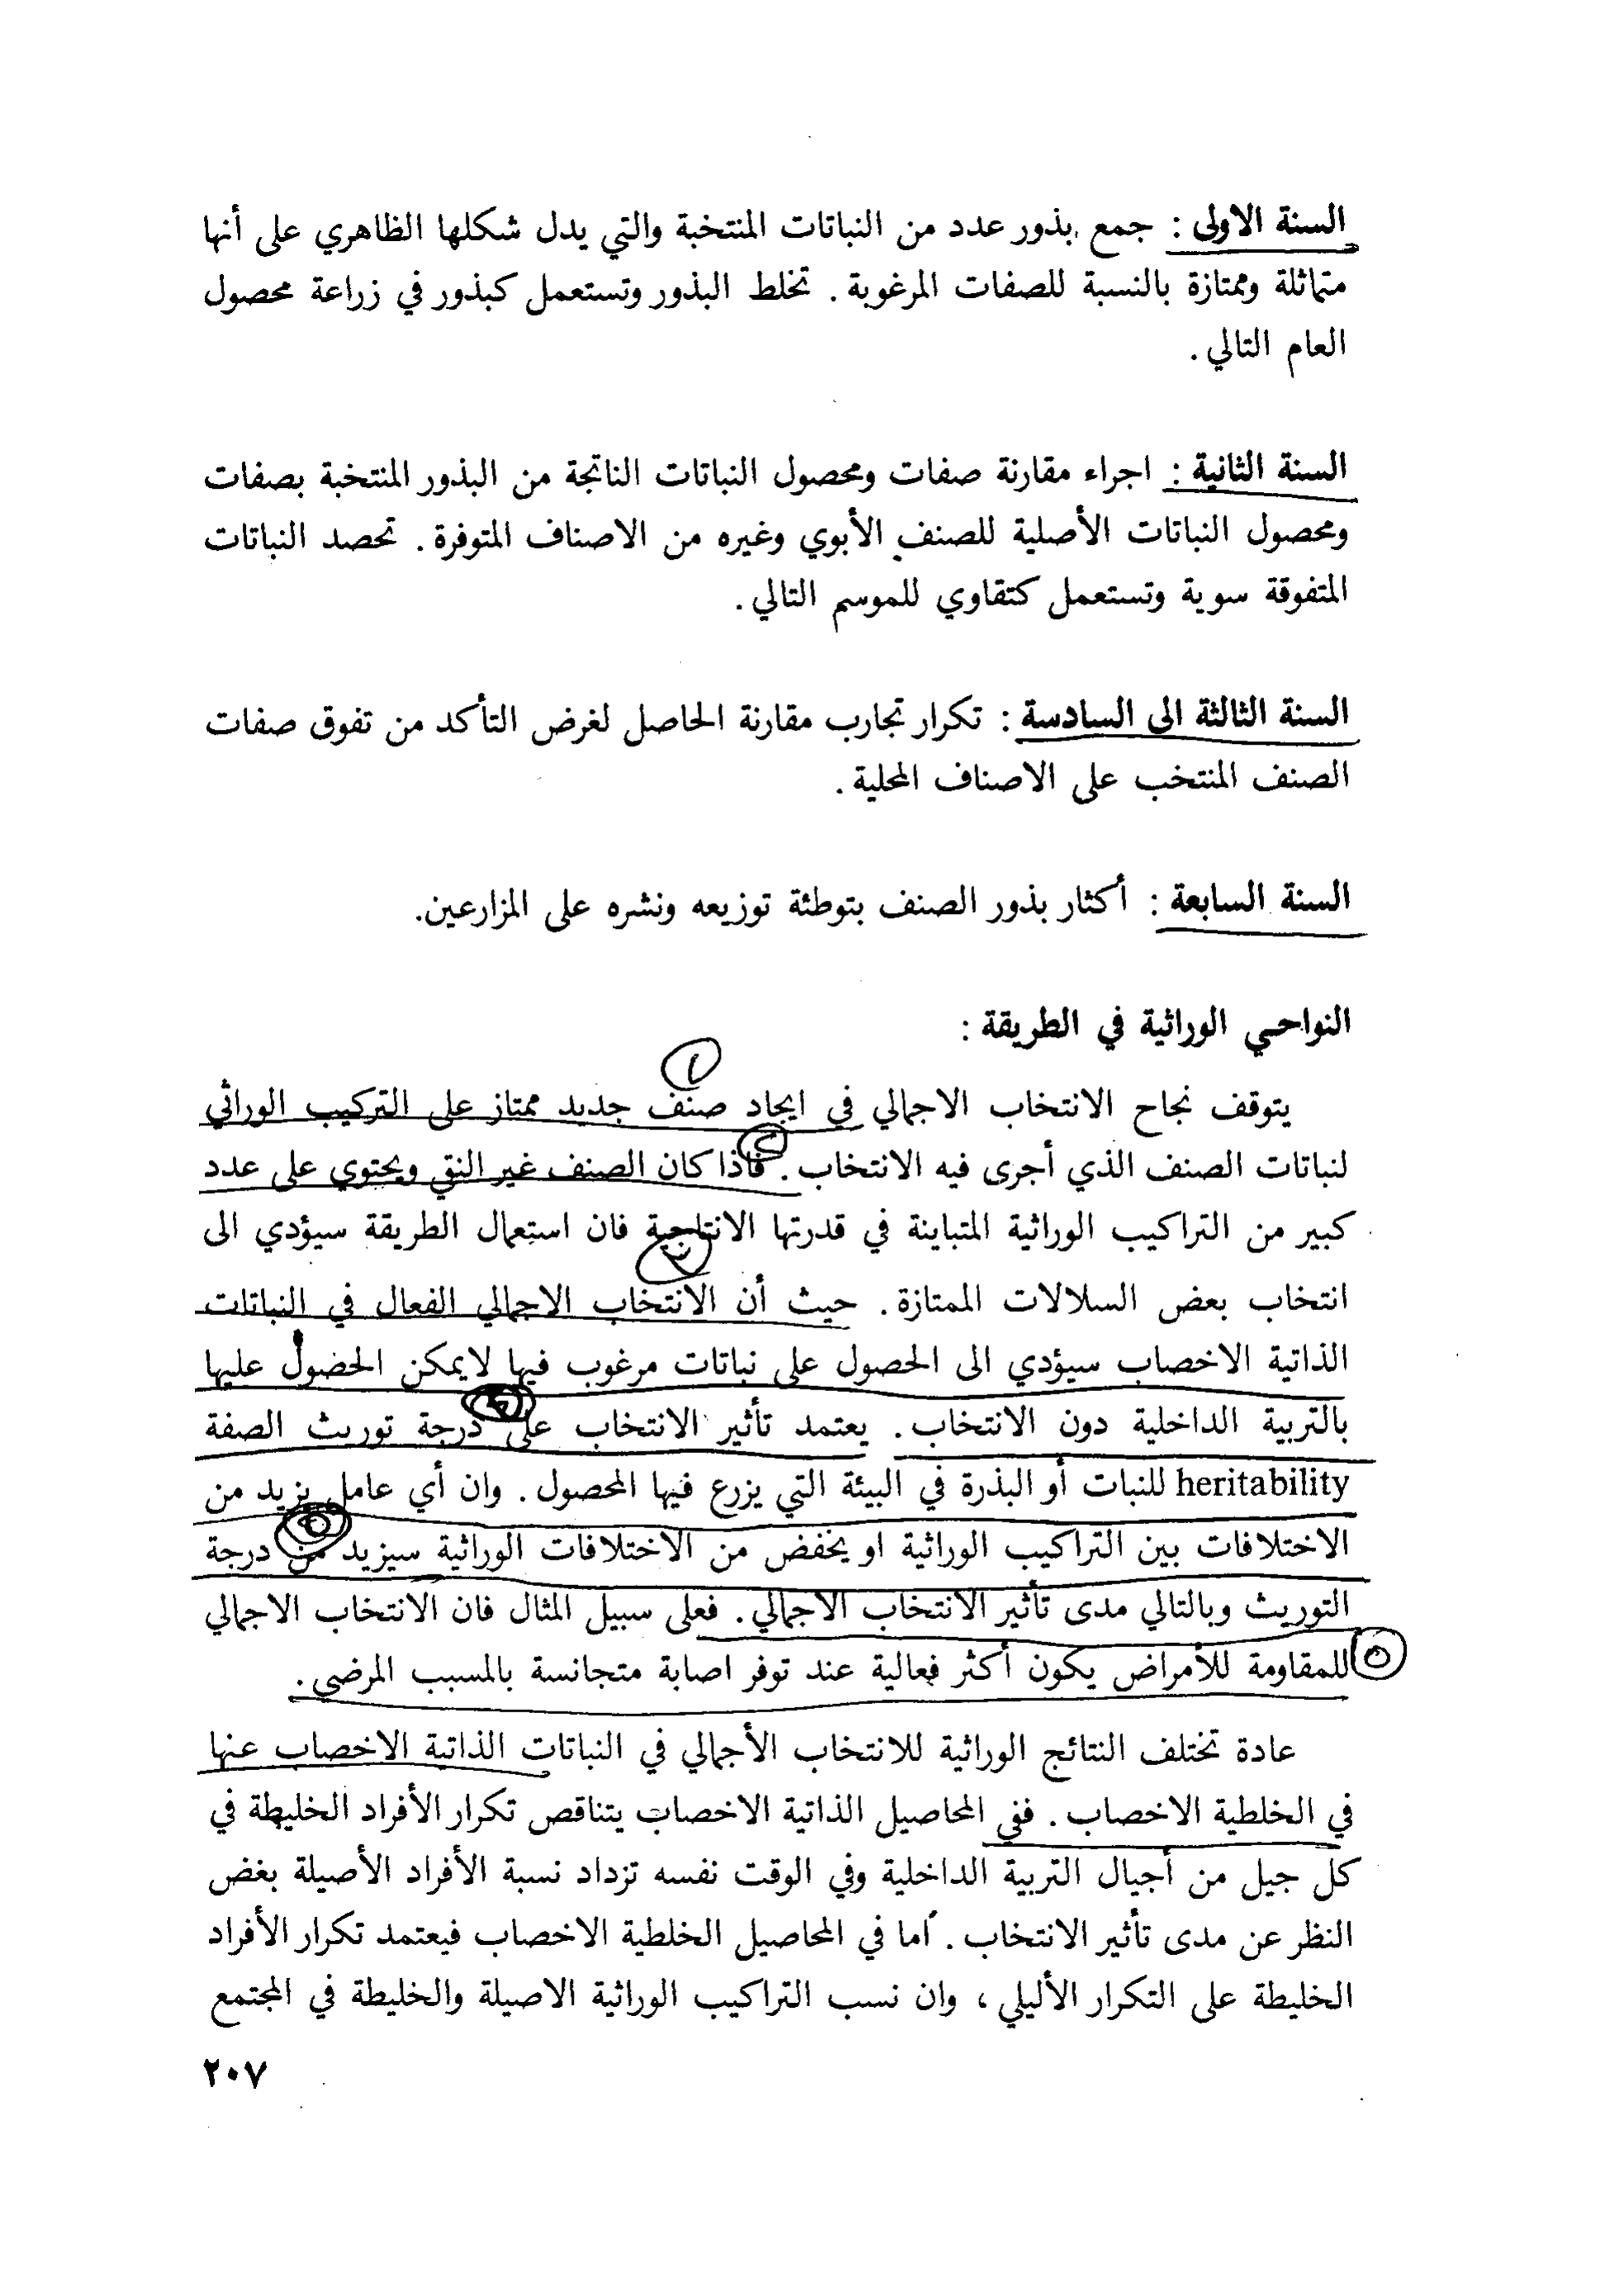 السنة الاولى : جمع بذور عدد من النباتات المنتخبة والتي يدل شكلها الظاهري على أنها
متماثلة وممتازة بالنسبة للصفات المرغوبة . تخلط البذور وتستعمل كبذور في زراعة محصول
العام التالي .
السنة الثانية : اجراء مقارنة صفات ومحصول النباتات الناتجة من البذور المنتخبة بصفات
ومحصول النباتات الأصلية للصنف الأبوي وغيره من الاصناف المتوفرة . تحصد النباتات
المتفوقة سوية وتستعمل كتقاوي للموسم التالي .
السنة الثالثة الى السادسة : تكرار تجارب مقارنة الحاصل لغرض التأكد من تفوق صفات
الصنف المنتخب على الاصناف المحلية .
السنة السابعة : أكثار بذور الصنف بتوطئة توزيعه ونشره على المزارعين.
النواحي الوراثية في الطريقة :
١
يتوقف نجاح الانتخاب الاجمالي في ايجاد صنف جديد ممتاز على التركيب الوراثي
لنباتات الصنف الذي أجرى فيه الانتخاب . فاذا كان الصنف غير النقي ويحتوي على عدد
كبير من التراكيب الوراثية المتباينة في قدرتها الانتاجية فان استعمال الطريقة سيؤدي الى
انتخاب بعض السلالات الممتازة . حيث أن الانتخاب الاجمالي الفعال في النباتات
الذاتية الاخصاب سيؤدي الى الحصول على نباتات مرغوب فيها لايمكن الحضول عليها
بالتربية الداخلية دون الانتخاب . يعتمد تأثير الانتخاب على درجة توريث الصفة
heritability للنبات أو البذرة في البيئة التي يزرع فيها المحصول . وان أي عامل يزيد من
الاختلافات بين التراكيب الوراثية او يخفض من الاختلافات الوراثية سيزيد من درجة
التوريث وبالتالي مدى تأثير الانتخاب الاجمالي . فعلى سبيل المثال فان الانتخاب الاجمالي
٥ للمقاومة للأمراض يكون أكثر فعالية عند توفر اصابة متجانسة بالمسبب المرضي .
عادة تختلف النتائج الوراثية للانتخاب الأجمالي في النباتات الذاتية الاخصاب عنها
في الخلطية الاخصاب . ففي المحاصيل الذاتية الاخصاب يتناقص تكرار الأفراد الخليطة في
كل جيل من أجيال التربية الداخلية وفي الوقت نفسه تزداد نسبة الأفراد الأصيلة بغض
النظر عن مدى تأثير الانتخاب . أما في المحاصيل الخلطية الاخصاب فيعتمد تكرار الأفراد
الخليطة على التكرار الأليلي ، وان نسب التراكيب الوراثية الاصيلة والخليطة في المجتمع
٢٠٧